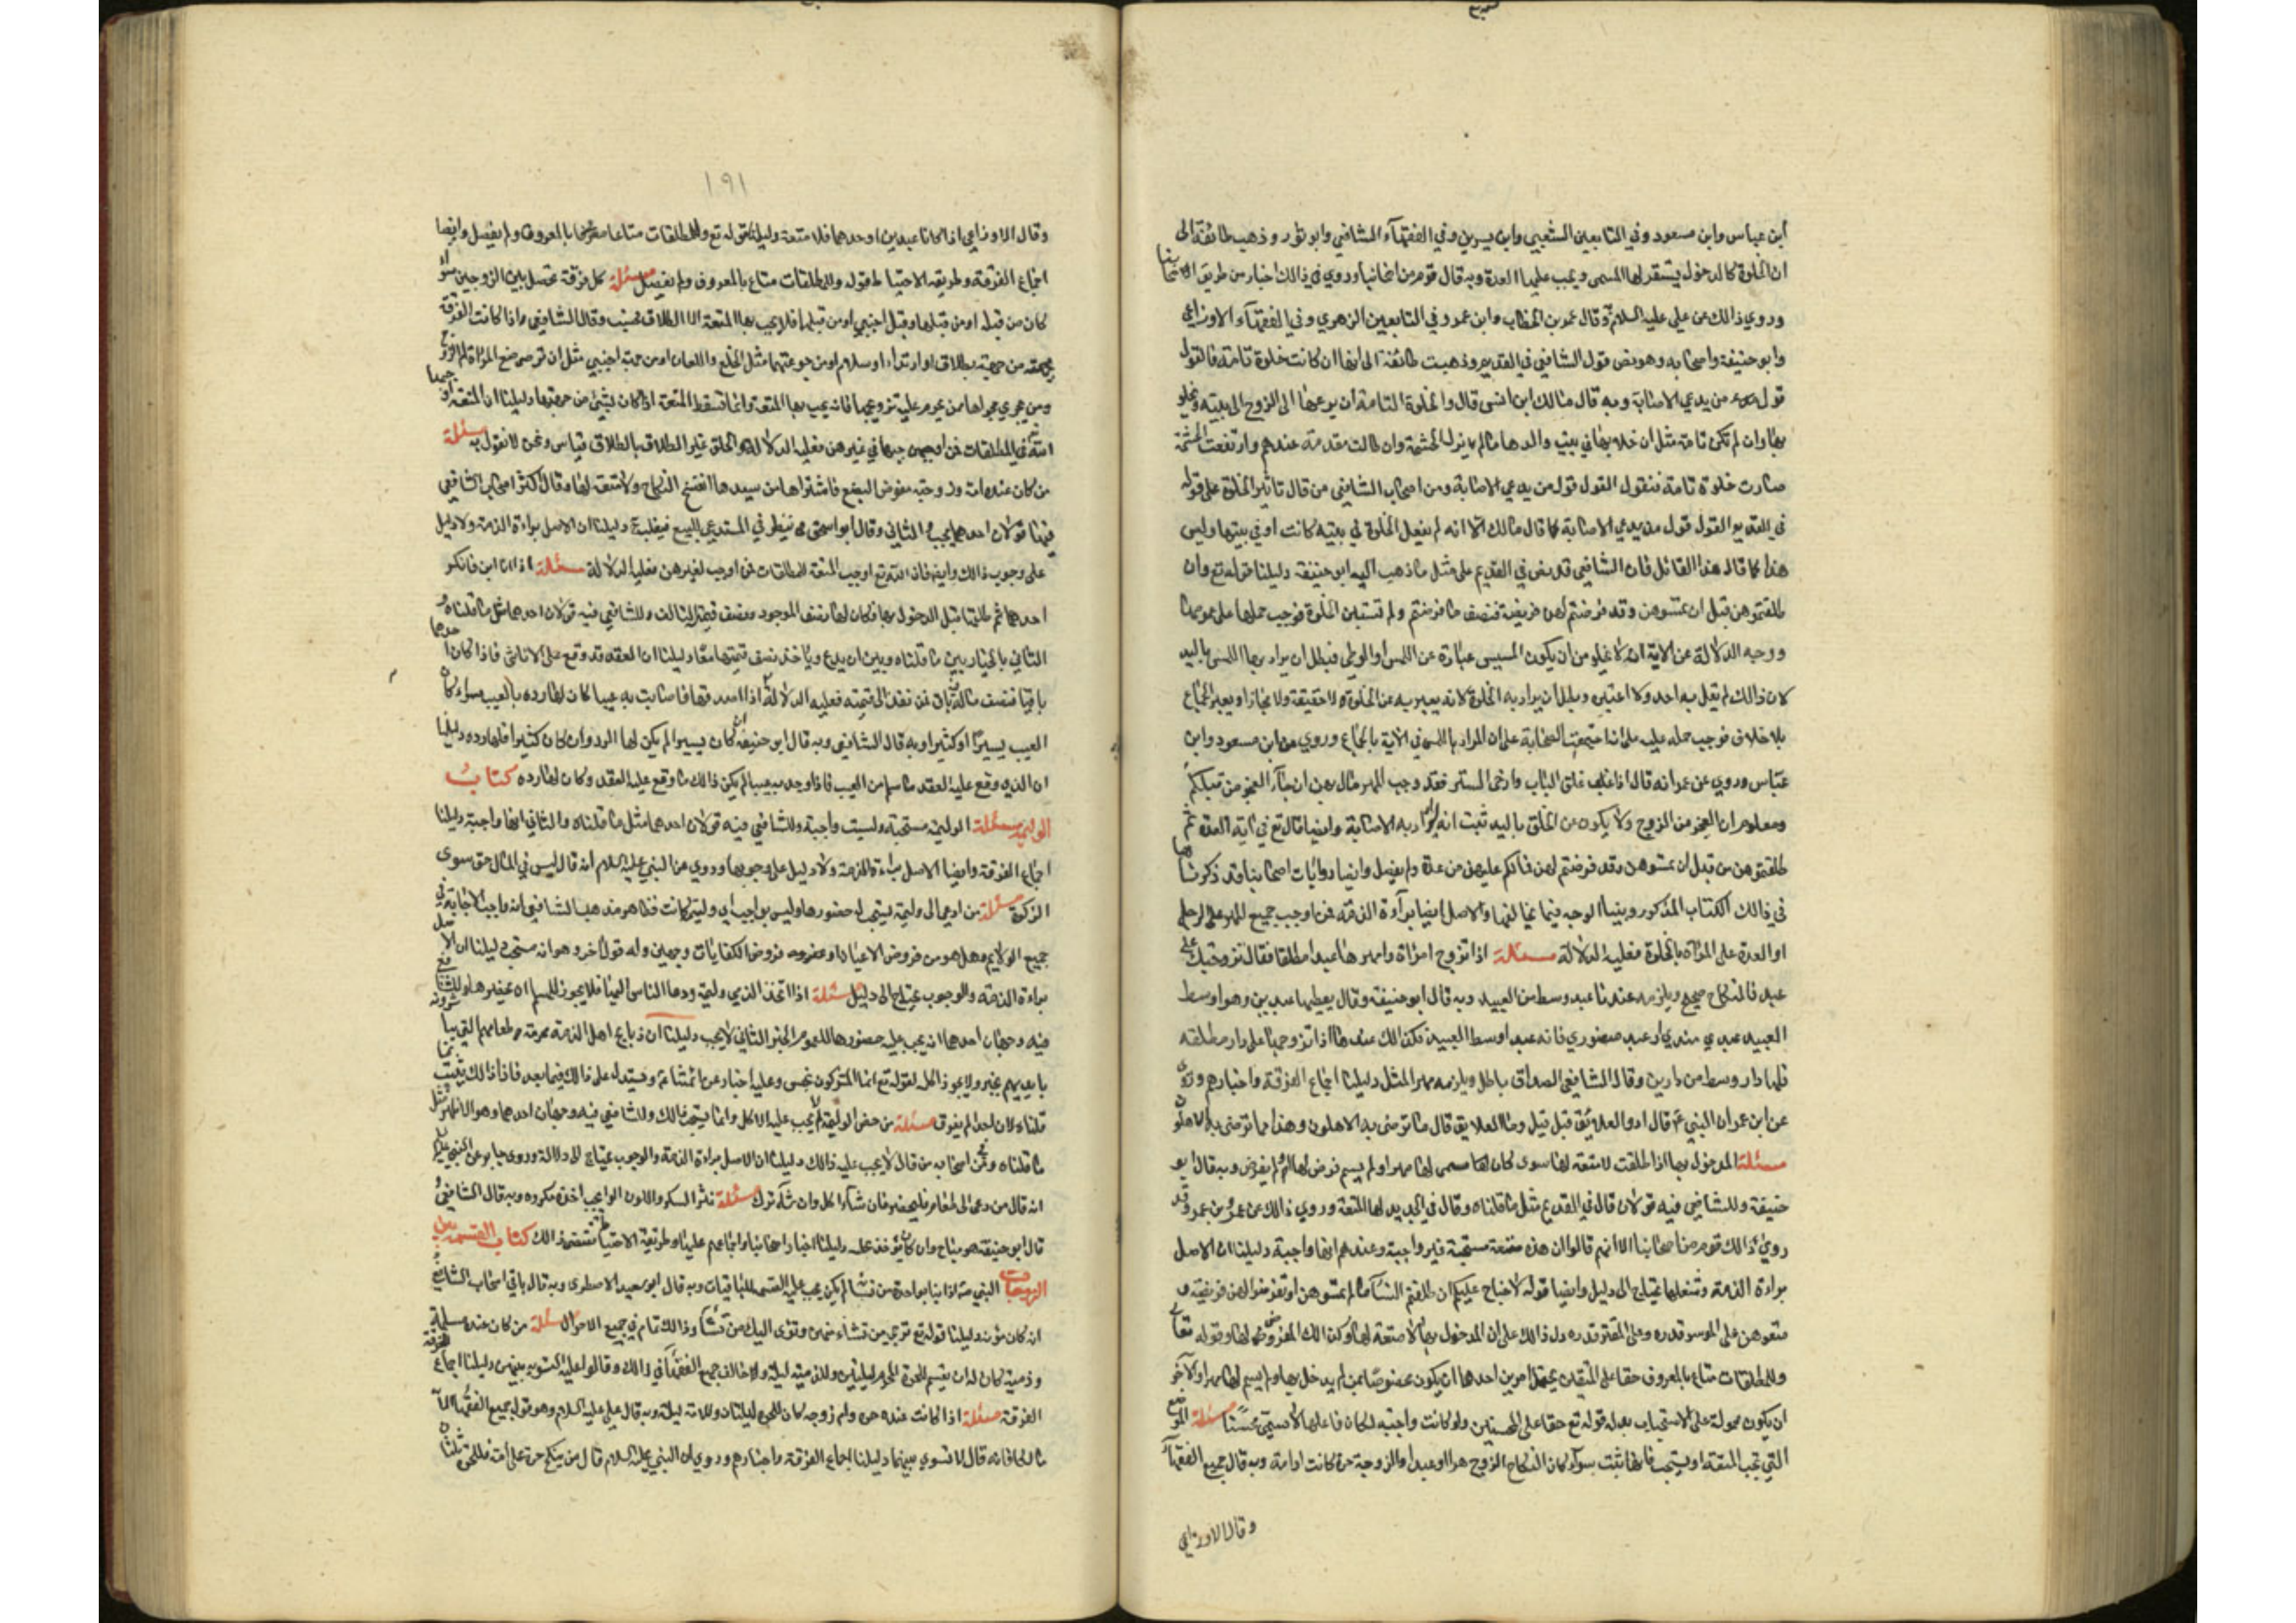 ابن عباس وابن مسعود وفي التابعين الشعبي وابن سيرين وفي الفقهآء الشافعي وابو ثور وذهب طائفة الى
ان الخلوة كالدخول يستقر لها المسمى ويجب عليها العدة وبه قال قوم من اصحابنا وروي في ذالك اخبار من طريق اصحابنا
وروي ذالك عن علي عليه السلام وقال عمر بن الخطاب وابن عمر وفي التابعين الزهري وفي الفقهآء الاوزاعي
وابو حنيفة واصحابه وهو نص قول الشافعي في القديم وذهبت طائفة الى انها ان كانت خلوة تامة فالقول
قول من يدعي الاصابة وبه قال مالك ابن انس قال والخلوة التامة ان يزفها الى الزوج الى بيته ويخلو
بها وان لم تكن تامة مثل ان خلا بها في بيت والدها ما لم يزل الحشمة وان طالت مدته عندهم وارتفعت الحشمة
صارت خلوة تامة فنقول القول قول من يدعي الاصابة ومن اصحاب الشافعي من قال تاثير الخلوة على قوله
في القديم القول قول من يدعي الاصابة كما قال مالك الا انه لم يفصل الخلوة في بيته كانت او في بيتها وليس
هذا كما قال هذا القائل فان الشافعي قد نص في القديم على مثل ما ذهب اليه ابو حنيفة دليلنا قوله تع وان
طلقتموهن قبل ان تمسوهن وقد فرضتم لهن فريضة فنصف ما فرضتم ولم تستبين الخلوة فوجب حملها على عمومها
ووجه الدلالة عن الاية انه لا يخلو من ان يكون المسيس عبارة عن اللمس او الوطي فبطل ان يراد بها اللمس باليد
لان ذالك لم يقل به احد ولا اعتبره وبطل ان يراد به الخلوة لانه يعبر به عن الخلوة لا حقيقة ولا مجازا ويعبر الجماع
بلا خلاف فوجب حمله عليه على انا اجتمعت الصحابة على ان المراد بالمس في الاية بالجماع وروي عن ابن مسعود وابن
عباس وروي عن عمر انه قال اذا غلق الباب وارخى الستر فقد وجب المهر ما ان جآء العجز من قبلكم
ومعلوم ان العجز من الزوج ولا يكون عن الخلق باليد ثبت انه اراد به الاصابة وايضا قال تع في اية العدة ثم
طلقتموهن من قبل ان تمسوهن وقد فرضتم لهن فما لكم عليهن من عدة ولم يفصل وايضا روايات اصحابنا قد ذكرناها
في ذالك الكتاب المذكور وبينا الوجه فيما يخالفها والاصل ايضا برآءة الذمة فمن اوجب جميع المهر على الرجل
او العدة على المراة بالخلوة فعليه الدلالة مسئلة اذا تزوج امراة وامهرها عبدا مطلقا فقال تزوجتك على
عبد فالنكاح صحيح ويلزمه عندنا عبد وسط من العبيد وبه قال ابو حنيفة وقال يعطيها عبد بين وهو اوسط
العبيد عبدي سندي او عبد منصوري فانه عبد اوسط العبيد فكذالك عندنا اذا تزوجها على دار مطلقة
فلها دار وسط من دارين وقال الشافعي الصداق باطل ويلزمه مهر المثل دليلنا اجماع الفرقة واخبارهم وروي
عن ابن عمر ان النبي ع قال ادوا العلايق قيل وما العلايق قال ما ترضى به الاهلون وهذا مما ترضى به الاهلون
مسئلة المدخول بها اذا طلقت لا متعة لها سوى كان لها مسمى لها مهر او لم يسم فرض لها او لم يفرض وبه قال ابو
حنيفة وللشافعي فيه قولان قال في القديم مثل ما قلناه وقال في الجديد لها المتعة وروي ذالك عن عمر وبن عمر وقد
روى ذالك قوم من اصحابنا الا انهم قالوا ان هذه متعة مستحبة غير واجبة وعندهم انها واجبة دليلنا ان الاصل
براءة الذمة وشغلها يحتاج الى دليل وايضا قوله لا جناح عليكم ان طلقتم النسآء ما لم تمسوهن او تفرضوا لهن فريضة و
متعوهن على الموسع قدره وعلى المقتر قدره دل ذالك على ان المدخول بها لا متعة لها وكذالك المفروض لها وقوله تعالى
وللمطلقات متاع بالمعروف حقا على المتقين يحتمل امرين احدهما ان يكون مخصوصا بمن لم يدخل بها ولم يسم لها مهر والآخر
ان يكون محمولة على الاستحباب بعد قوله تع حقا على المحسنين ولو كانت واجبة لكان فاعلها لا يسمى محسنًا مسئلة الموضع
التي تجب المتعة او يستحب فانها تثبت سوآء كان النكاح الزوج حرا او عبدا والزوجة حرة كانت او امة وبه قال جميع الفقهآء
وقال الاوزاعي
١٩١
وقال الاوزاعي اذا كانا عبدين او احدهما فلا متعة دليلنا قوله تع وللمطلقات متاعا بالمعروف ولم يفصل وايضا
اجماع الفرقة وطريقة الاحتياط وقوله وللمطلقات متاع بالمعروف ولم يفصل مسئلة كل فرقة تحصل بين الزوجين سواء
كان من قبله او من قبلها او قبل اجنبي او من قبلهما فلا يجب بها المتعة الا الطلاق فحسب وقال الشافعي اذا كانت الفرقة
من جهته بطلاق او ارتداد او سلام او من جهتهما مثل الخلع واللعان او من جهة اجنبي مثل ان ترضع المراة لم الزوج
ومن يجري مجراها من يحرم عليه تزويجها فانه يجب بها المتعة وانما تسقط المتعة اذا كان بشيئ من جهتها دليلنا ان المتعة
في المطلقات فمن اوجبها في غيرهن فعليه الدلالة والحاق غير الطلاق بالطلاق قياس ونحن لا نقول به مسئلة
من كان عنده امة زوجته مفوضة البضع فاشتراها من سيدها انفسخ النكاح ولا متعة لها وقال اكثر اصحاب الشافعي
فيها قولان احدهما يجب والثاني وقال ابو اسحق ينظر في المستدعي للبيع فيغلب دليلنا ان الاصل براءة الذمة ولا دليل
على وجوب ذالك وايضا فان الله تع اوجب المتعة للمطلقات فمن اوجب لغيرهن فعليه الدلالة مسئلة
احدهما ثم طلقها قبل الدخول بها فكان لها نصف الموجود ونصف قيمة التالف وللشافعي فيه قولان احدهما مثل ما قلناه و
الثاني بالخيار بين ما قلناه وبين ان يدع وياخذ نصف قيمتها معا دليلنا ان العقد قد وقع على الاناثى فاذا كان احدهما
باقيا فنصف ماله باق فمن نقله الى قيمته فعليه الدلالة اذا اصدقها فاصابت به عيبا كان لها رده بالعيب سواء كان
العيب يسيرًا او كثيرا وبه قال الشافعي وبه قال ابو حنيفة ان كان يسيرا لم يكن لها الرد وان كان كثيرا فلها رده دليلنا
ان الذي وقع عليه العقد ما سلم من العيب فاذا وجد به عيب لم يكن ذالك ما وقع عليه العقد وكان لها رده كتاب
الوليمة مسئلة الوليمة مستحبة وليست واجبة وللشافعي فيه قولان احدهما مثل ما قلناه والثاني انها واجبة دليلنا
اجماع الفرقة وايضا الاصل براءة الذمة ولا دليل على وجوبها وروي عن النبي عليه السلام انه قال ليس في المال حق سوى
الزكوة مسئلة من ادعي الى وليمة يستحب له حضورها وليس بواجب اي وليمة كانت مذهب الشافعي انه واجب الاجابة في
جميع الولايم وهل هو من فروض الاعيان او فروض الكفايات وجهين وله قول آخر وهو انه مستحب دليلنا ان الاصل
براءة الذمة والوجوب يحتاج الى دليل مسئلة اذا اتخذ الذمي وليمة ودعا الناس اليها فلا يجوز للمسلم ان يحضرها وللشافعي
فيه وجهان احدهما انه يجب عليه حضورها لعموم الخبر الثاني لا يجب دليلنا ان ذبايح اهل الذمة محرمة وطعامهم التي يباشرونه
بايديهم نجس ولا يجوز اكله لقوله تع انما المشركون نجس وعليه اخبار عن ائمتنا ع ونستدل على ذالك فيما بعد فاذا ذالك يثبت
قلناه لان احدا لم يفرق مسئلة من حضر الوليمة لا يجب عليه الاكل وانما يستحب ذالك وللشافعي فيه وجهان احدهما وهو الاظهر مثل
ما قلناه ومن اصحابه من قال لا يجب عليه ذالك دليلنا ان الاصل براءة الذمة والوجوب يحتاج الى دلالة وروى جابر عن النبي عليه
انه قال من دعى الى طعام فليحضر فان شآء اكل وان شآء ترك مسئلة نثر السكر واللوز في الولايم اخذه مكروه وبه قال الشافعي
قال ابو حنيفة هو مباح وان كان يؤخذ دليلنا اخبار اصحابنا واجماعهم عليها وطريقة الاحتياط تقتضي ذالك كتاب القسم بين
الزوجات النبي بواحدة من نسائه لم يكن يجب عليه القسم للباقيات وبه قال ابو سعيد الاصطخري وبه قال باقي اصحاب الشافعي
دليلنا قوله تع ترجي من تشاء منهن وتؤي اليك من تشآء وذالك تام في جميع الاحوال مسئلة من كان عنده مسلمة
وذمية كان له ان يقسم للحرة المسلمة ليلتين وللذمية ليلة وخالف جميع الفقهآء في ذالك وقالوا عليه التسوية بينهن دليلنا اجماع
الفرقة مسئلة اذا كانت عنده حرة وامة زوجه كان للحرة ليلتان وللامة ليلة وبه قال علي عليه السلام وهو قول جميع الفقهآء الا
مالكا فانه قال لا نسوي بينهما دليلنا اجماع الفرقة واخبارهم وروي ان النبي عليه السلام قال من نكح حرة على امة فللحرة ثلثان